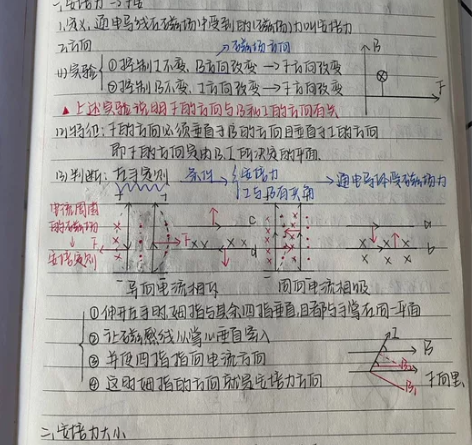 一、安培力
1.定义:通电导线在磁场中受到的(磁场)力叫安培力
2.方向
→磁场方向
(1)实验
①控制I不变,B方向改变→F方向改变
②控制B不变,I方向改变→F方向改变
B
F
▲上述实验说明F的方向与B和I的方向有关
(2)特征:F的方向必须垂直于B的方向且垂直于I的方向
即F的方向定为B、I所决定的平面.
(3)判断:左手定则
条件
安培力
I与B有夹角
→通电导体受磁场力
电流周围
的磁场
F
F
安培定则
c
d
a
b
异向电流相斥
同向电流相吸
①伸开左手时,拇指与其余四指垂直,且都与手掌在同一平面
②让磁感线从掌心垂直穿入
③并使四指指向电流方向
④这时拇指的方向就是安培力方向
I
B
B₁
F向里
二、安培力大小